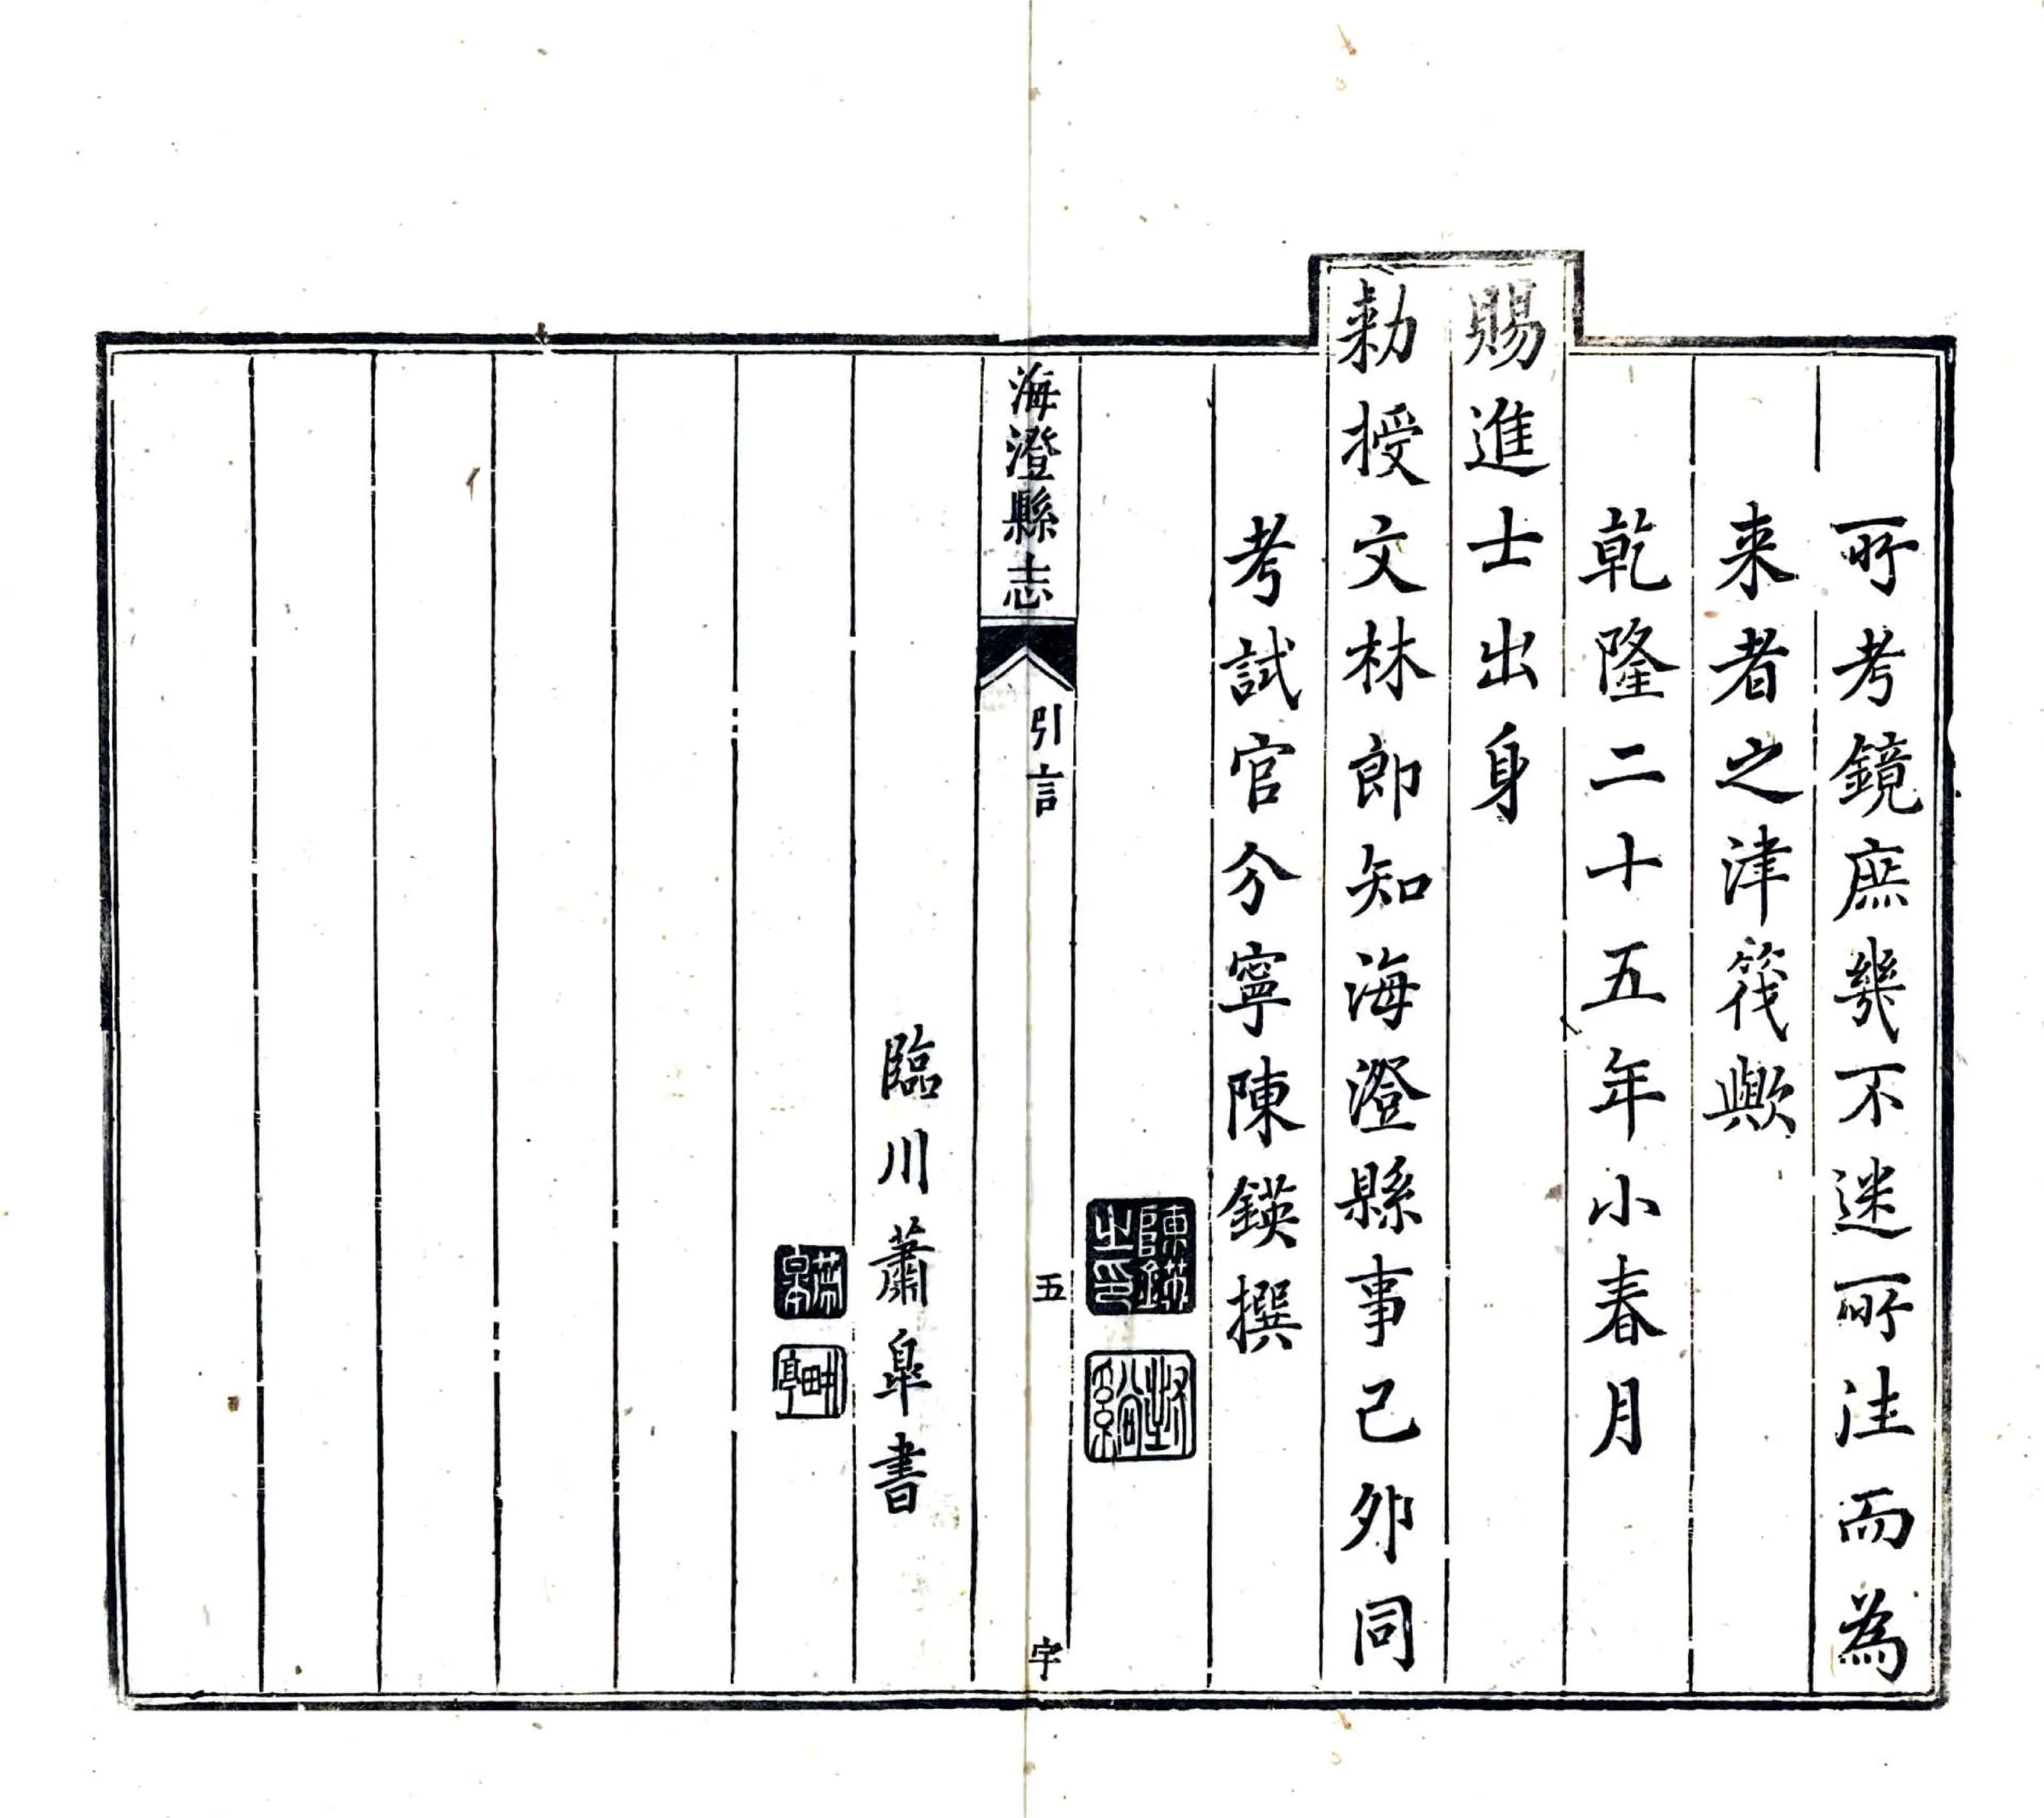 所考鏡庶幾不迷所往而為
来者之津筏歟
乾隆二十五年小春月
賜進士出身
勅授文林郎知海澄縣事己夘同
考試官分寧陳鍈撰
陳鍈之印
海澄縣志
引言
五
字
臨川蕭皐書
蕭皐